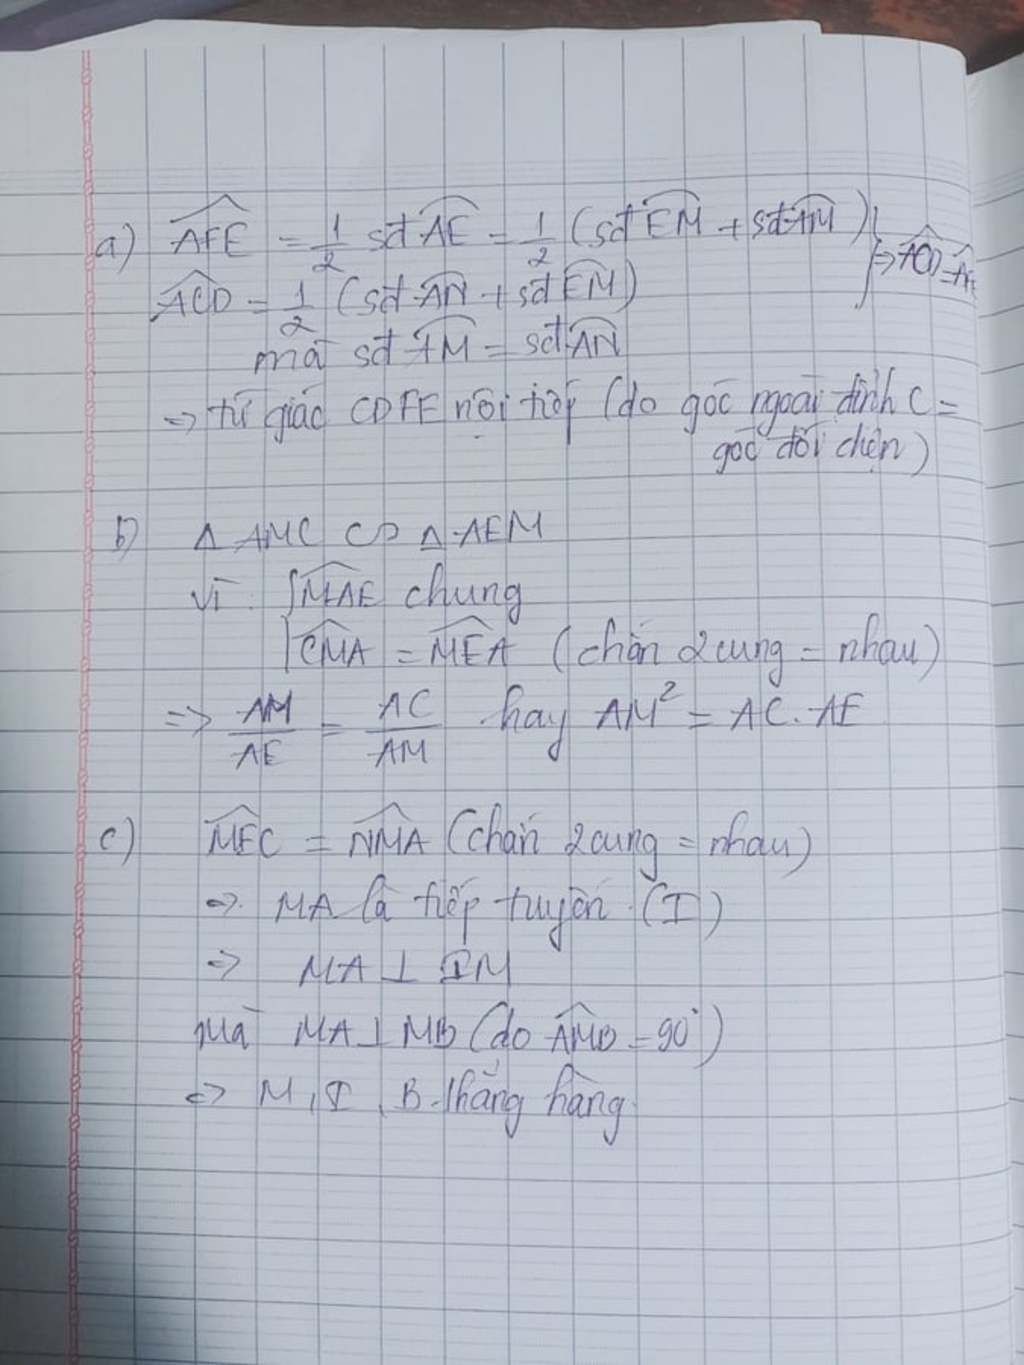 a) AFE = 1/2 sđ AE = 1/2 (sđ EM + sđ AM) } => ACD = AFE
ACD = 1/2 (sđ AN + sđ EM)
mà sđ AM = sđ AN
=> tứ giác CDFE nội tiếp (do góc ngoài đỉnh C =
góc đối diện)
b) Δ AMC ∽ Δ AEM
vì: { MAE chung
CMA = MEA (chắn 2 cung = nhau)
=> AM/AE = AC/AM hay AM² = AC. AE
c) MEC = NMA (chắn 2 cung = nhau)
=> MA là tiếp tuyến (I)
=> MA ⊥ IM
Mà MA ⊥ MB (do AMB = 90°)
=> M, I, B thẳng hàng.